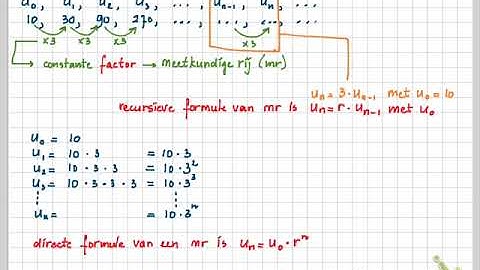 u₀, u₁, u₂, u₃, ..., ..., uₙ₋₁, uₙ, ...
10, 30, 90, 270, ..., ..., ..., ..., ...
×3 ×3 ×3 ×3
constante factor → meetkundige rij (mr)
uₙ = 3 · uₙ₋₁ met u₀ = 10
recursieve formule van mr is uₙ = r · uₙ₋₁ met u₀
u₀ = 10
u₁ = 10 · 3 = 10 · 3
u₂ = 10 · 3 · 3 = 10 · 3²
u₃ = 10 · 3 · 3 · 3 = 10 · 3³
⋮ ⋮
uₙ = = 10 · 3ⁿ
directe formule van een mr is uₙ = u₀ · rⁿ